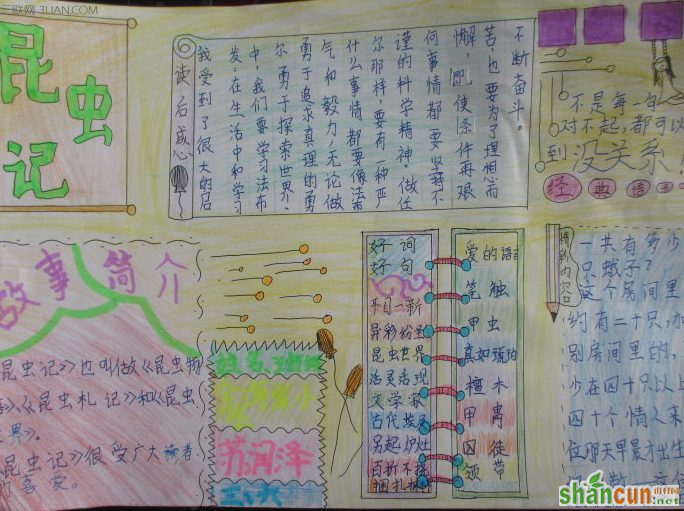 三联网 3LIAN.COM
昆虫记
读后感
我受到了很大的启
发:在生活中和学习
中,我们要学习法布
尔勇于探索世界、
勇于追求真理的勇
气和毅力,无论做
什么事情都要像法布
尔那样,要有一种严
谨的科学精神,做任
何事情都要坚持不
懈,即使条件再艰
苦,也要为了理想而
不断奋斗。
不是每一句
对不起,都可以
到没关系!
经典语
故事简介
昆虫记》也叫做《昆虫物
》、《昆虫札记》和《昆虫
世界》。
昆虫记》很受广大读者
的喜爱。
姓名:班级
苏润泽
好词
好句
平日一新
异彩纷呈
昆虫世界
活灵活现
文学家
古代埃及
另起炉灶
百折不挠
捆扎
爱的语言
笔触
甲虫
真如琥珀
檀木
甲胄
囚徒
领带
精彩内容
一共有多少
只蛾子?
这个房间里
约有二十只,加
别房间里的,
少在四十只以上
四十个情人来
位那天早晨才出生
shancun.net
山村网